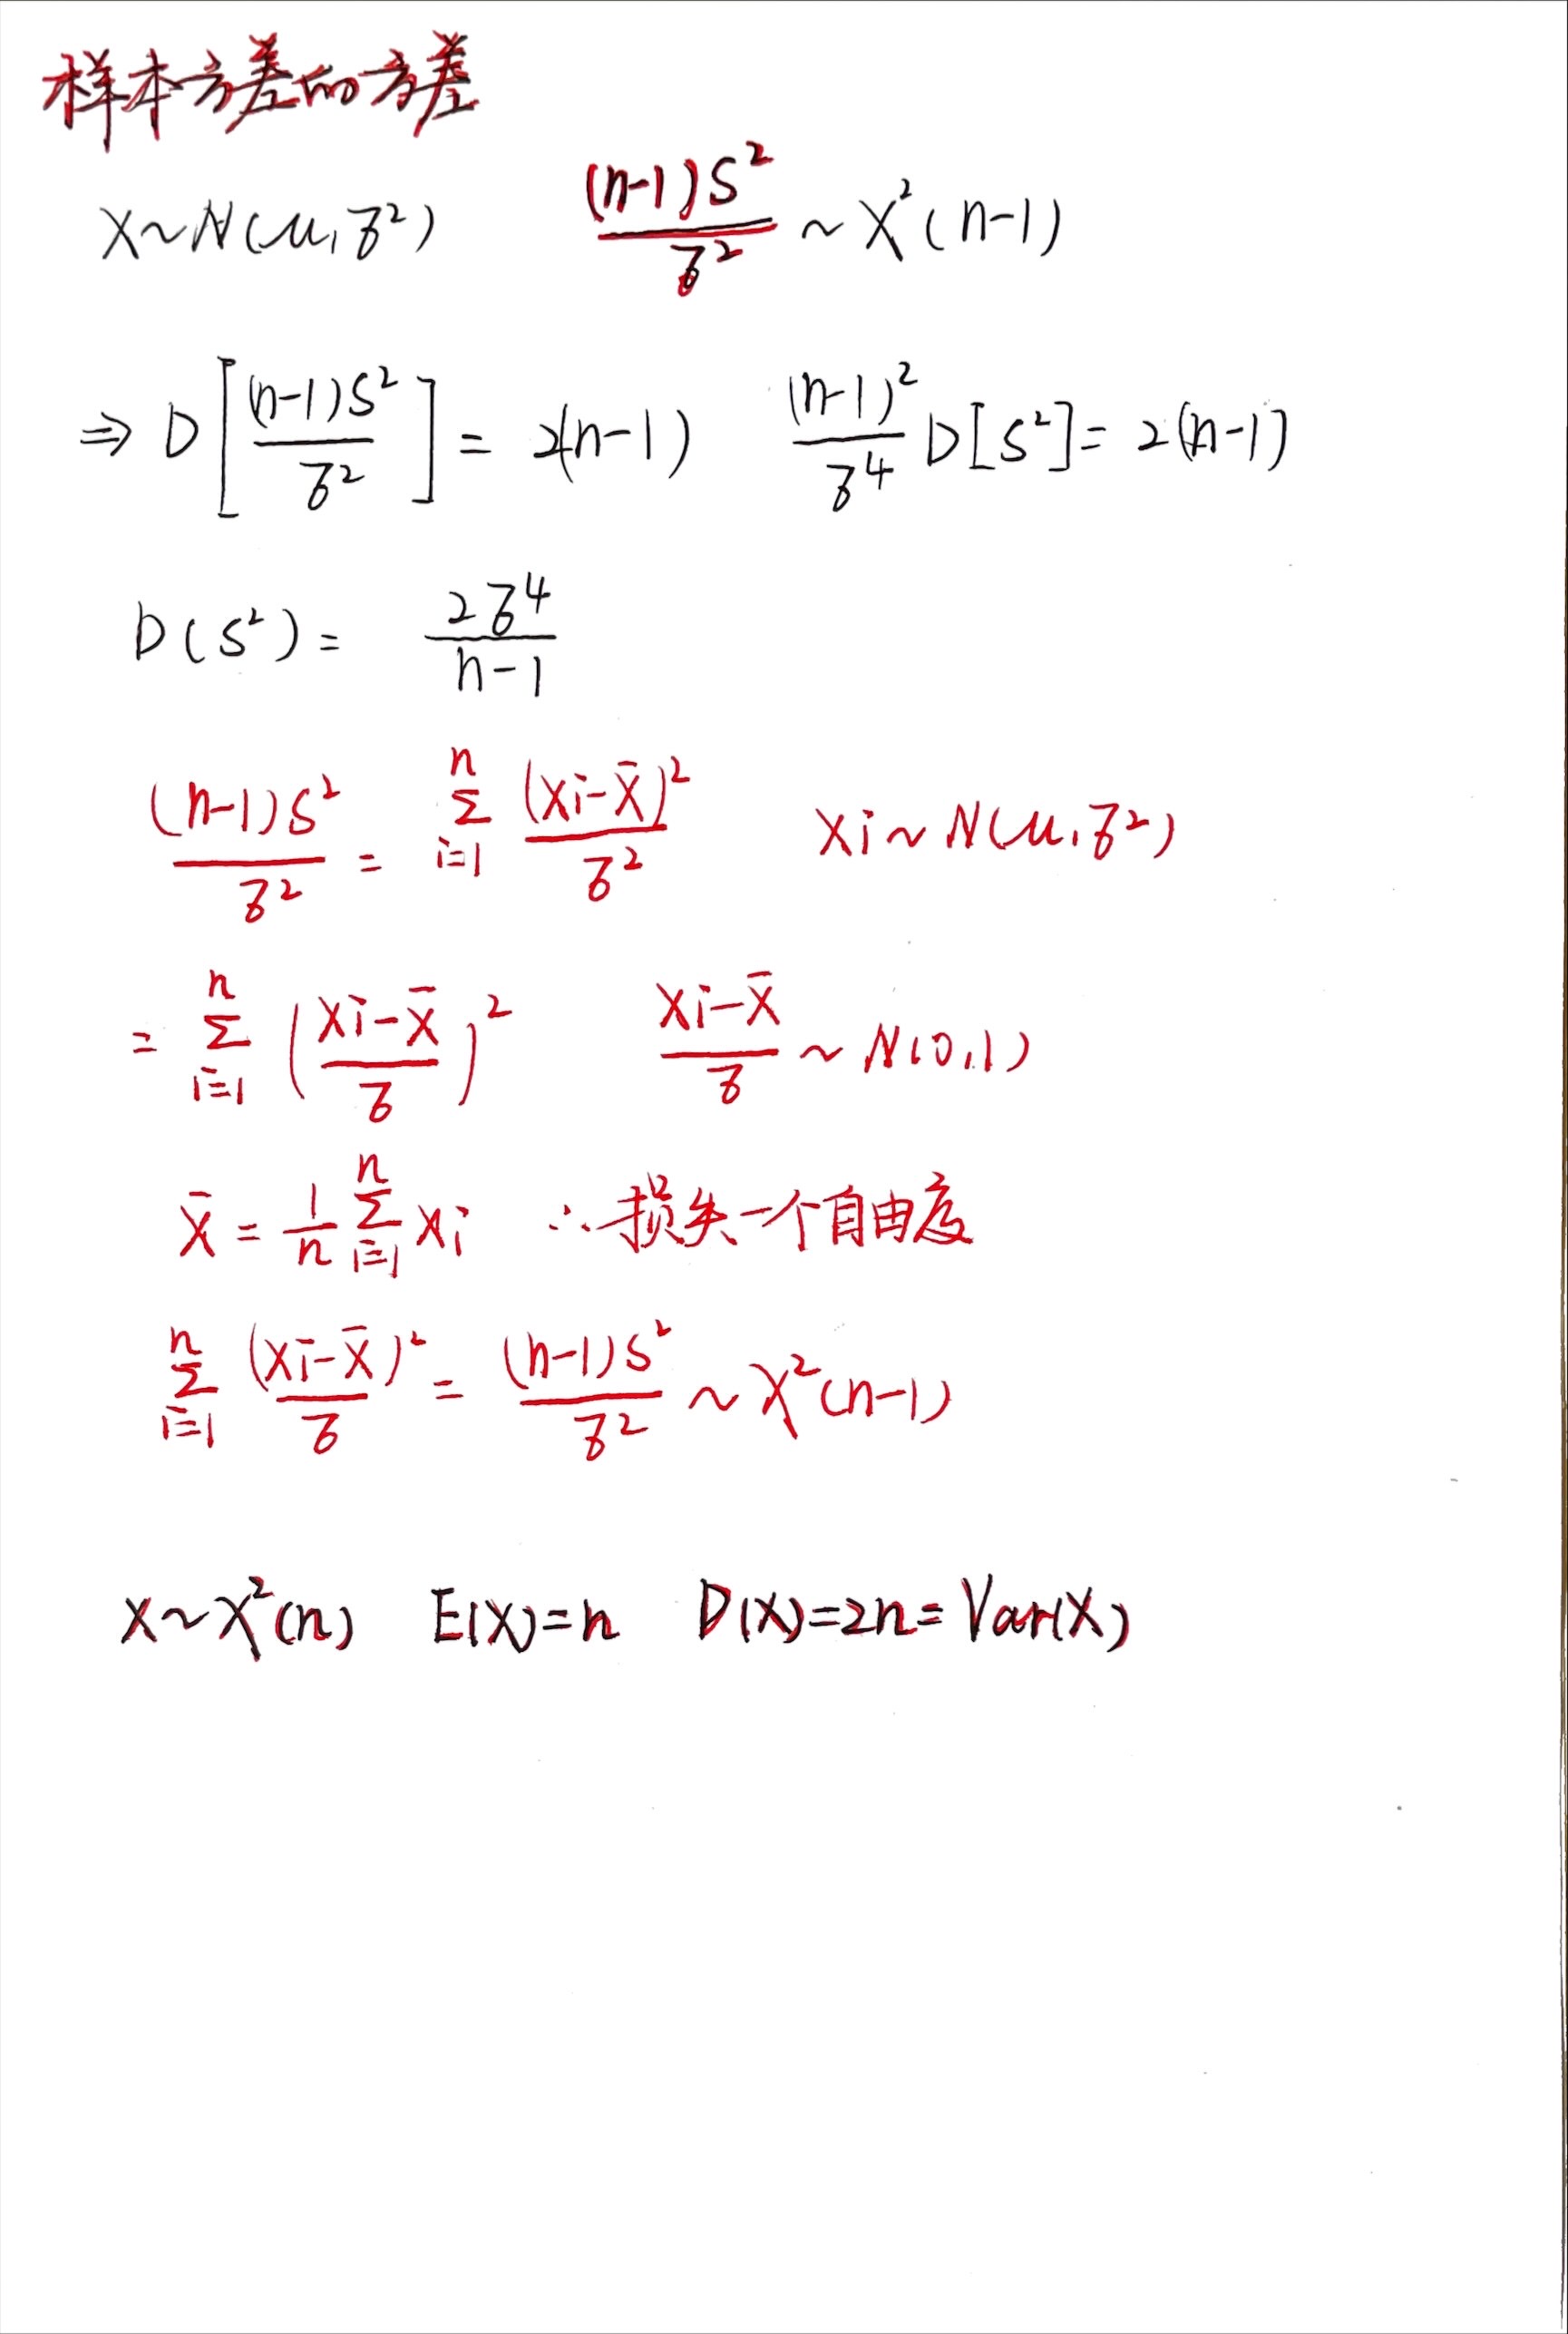 样本方差的方差
X~N(μ,σ²) (n-1)S²/σ² ~ χ²(n-1)
⇒ D[(n-1)S²/σ²] = 2(n-1) (n-1)²/σ⁴ D[S²] = 2(n-1)
D(S²) = 2σ⁴/(n-1)
(n-1)S²/σ² = Σ_{i=1}^{n} (Xi-X̄)²/σ² Xi~N(μ,σ²)
= Σ_{i=1}^{n} ((Xi-X̄)/σ)² (Xi-X̄)/σ ~ N(0,1)
X̄ = 1/n Σ_{i=1}^{n} Xi ∴损失一个自由度
Σ_{i=1}^{n} (Xi-X̄)²/σ = (n-1)S²/σ² ~ χ²(n-1)
X~χ²(n) E(X)=n D(X)=2n=Var(X)